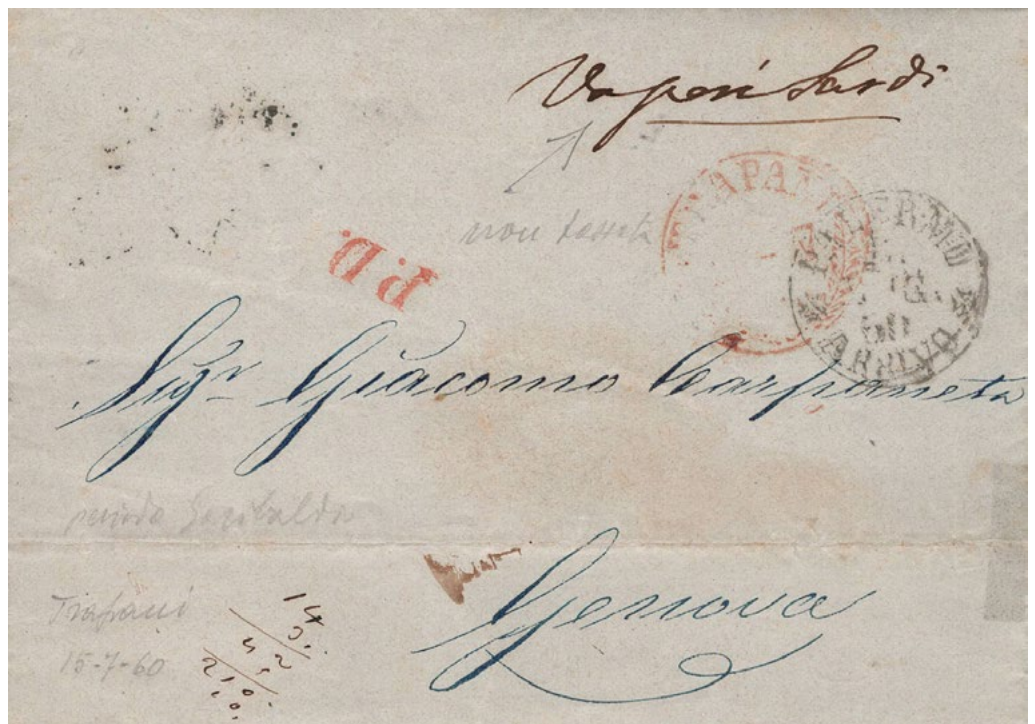 Vapori Sardi
non tassata
TRAPANI
P.D.
PALERMO
60
ARRIVO
Sigr Giacomo Carpaneta
periodo Garibaldi
Genova
Trapani
15-7-60